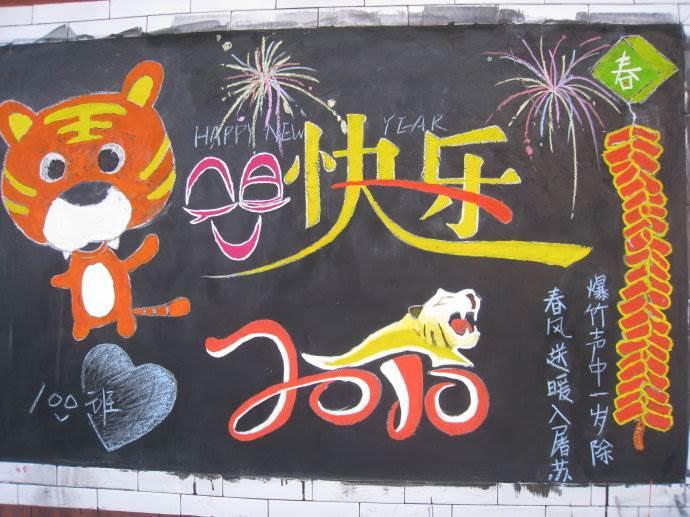 HAPPY NEW YEAR
快乐
2010
春
爆竹声中一岁除
春风送暖入屠苏
100班